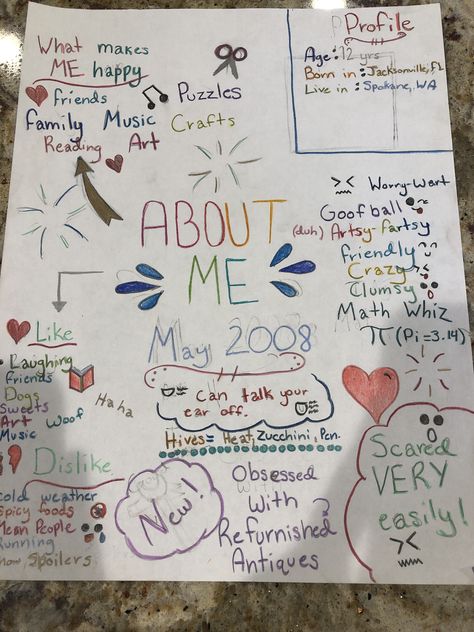 What makes
ME happy
Friends
Puzzles
Family Music Crafts
Reading Art
Profile
Age: 12 yrs
Born in: Jacksonville, FL
Live in: Spokane, WA
ABOUT
ME
May 2008
Worry-Wart
Goofball
(duh) Artsy-Fartsy
friendly
Crazy
Clumsy
Math Whiz
π (Pi = 3.14)
Like
Laughing
friends
Dogs
Sweets
Art Woof
Music
Haha
Can talk your
ear off.
Hives = Heat, Zucchini, Pen.
Dislike
cold weather
Spicy foods
Mean People
Running
Spoilers
New!
Obsessed
With
Refurnished
Antiques
Scared
VERY
easily!